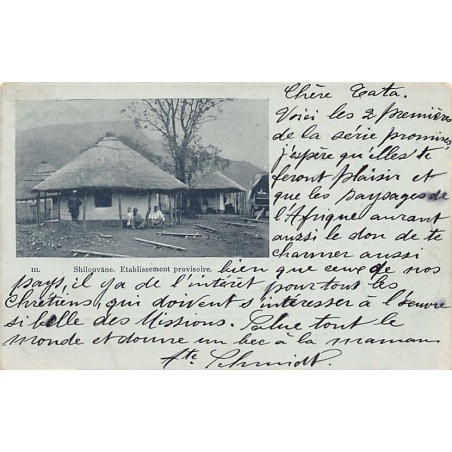 Chère Tata.
Voici les 2 premières
de la série promise,
j'espère qu'elles te
feront plaisir et
que les paysages de
l'Afrique auront
aussi le don de te
charmer aussi
III. Shilouvâne. Etablissement provisoire.
bien que ceux de nos
pays, il y a de l'intérêt pour tout les
Chrétiens, qui doivent s'intéresser à l'œuvre
si belle des Missions. Salue tout le
monde et donne un bec à la maman
Schmidt.